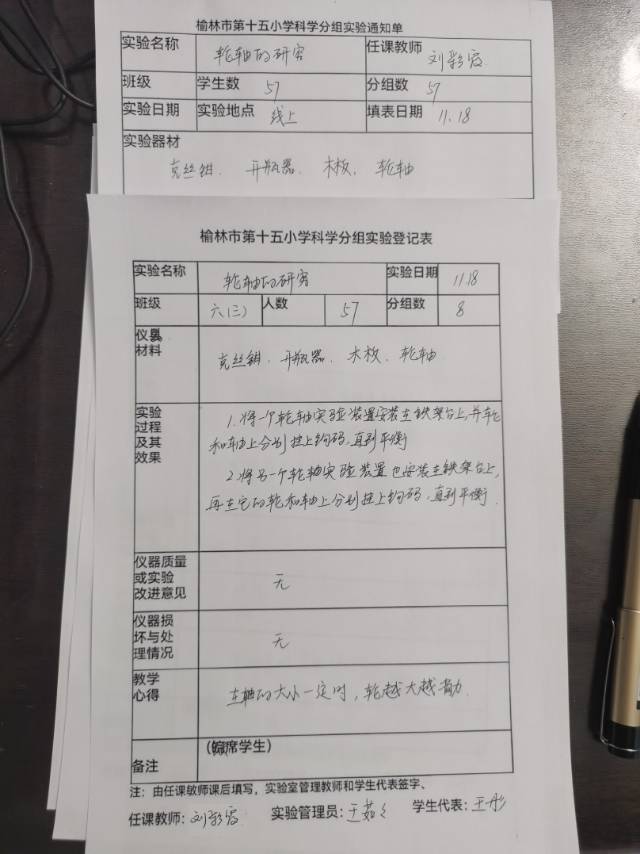 榆林市第十五小学科学分组实验通知单
实验名称 轮轴的研究 任课教师 刘彩霞
班级 学生数 57 分组数 57
实验日期 实验地点 线上 填表日期 11.18
实验器材
克丝钳、开瓶器、木板、轮轴
榆林市第十五小学科学分组实验登记表
实验名称 轮轴的研究 实验日期 11.18
班级 六(三) 人数 57 分组数 8
仪器
材料
克丝钳、开瓶器、木板、轮轴
实验
过程
及其
效果
1.将一个轮轴实验装置安装在铁架台上,并在轮
和车由上分别挂上钩码,直到平衡
2.将另一个轮轴实验装置也安装在铁架台上,
再在它的轮和轴上分别挂上钩码,直到平衡.
仪器质量
或实验
改进意见
无
仪器损
坏与处
理情况
无
教学
心得
在轴的大小一定时,轮越大越省力.
备注
(缺席学生)
注:由任课教师课后填写,实验室管理教师和学生代表签字、
任课教师:刘彩霞 实验管理员:王茹 学生代表:王彤